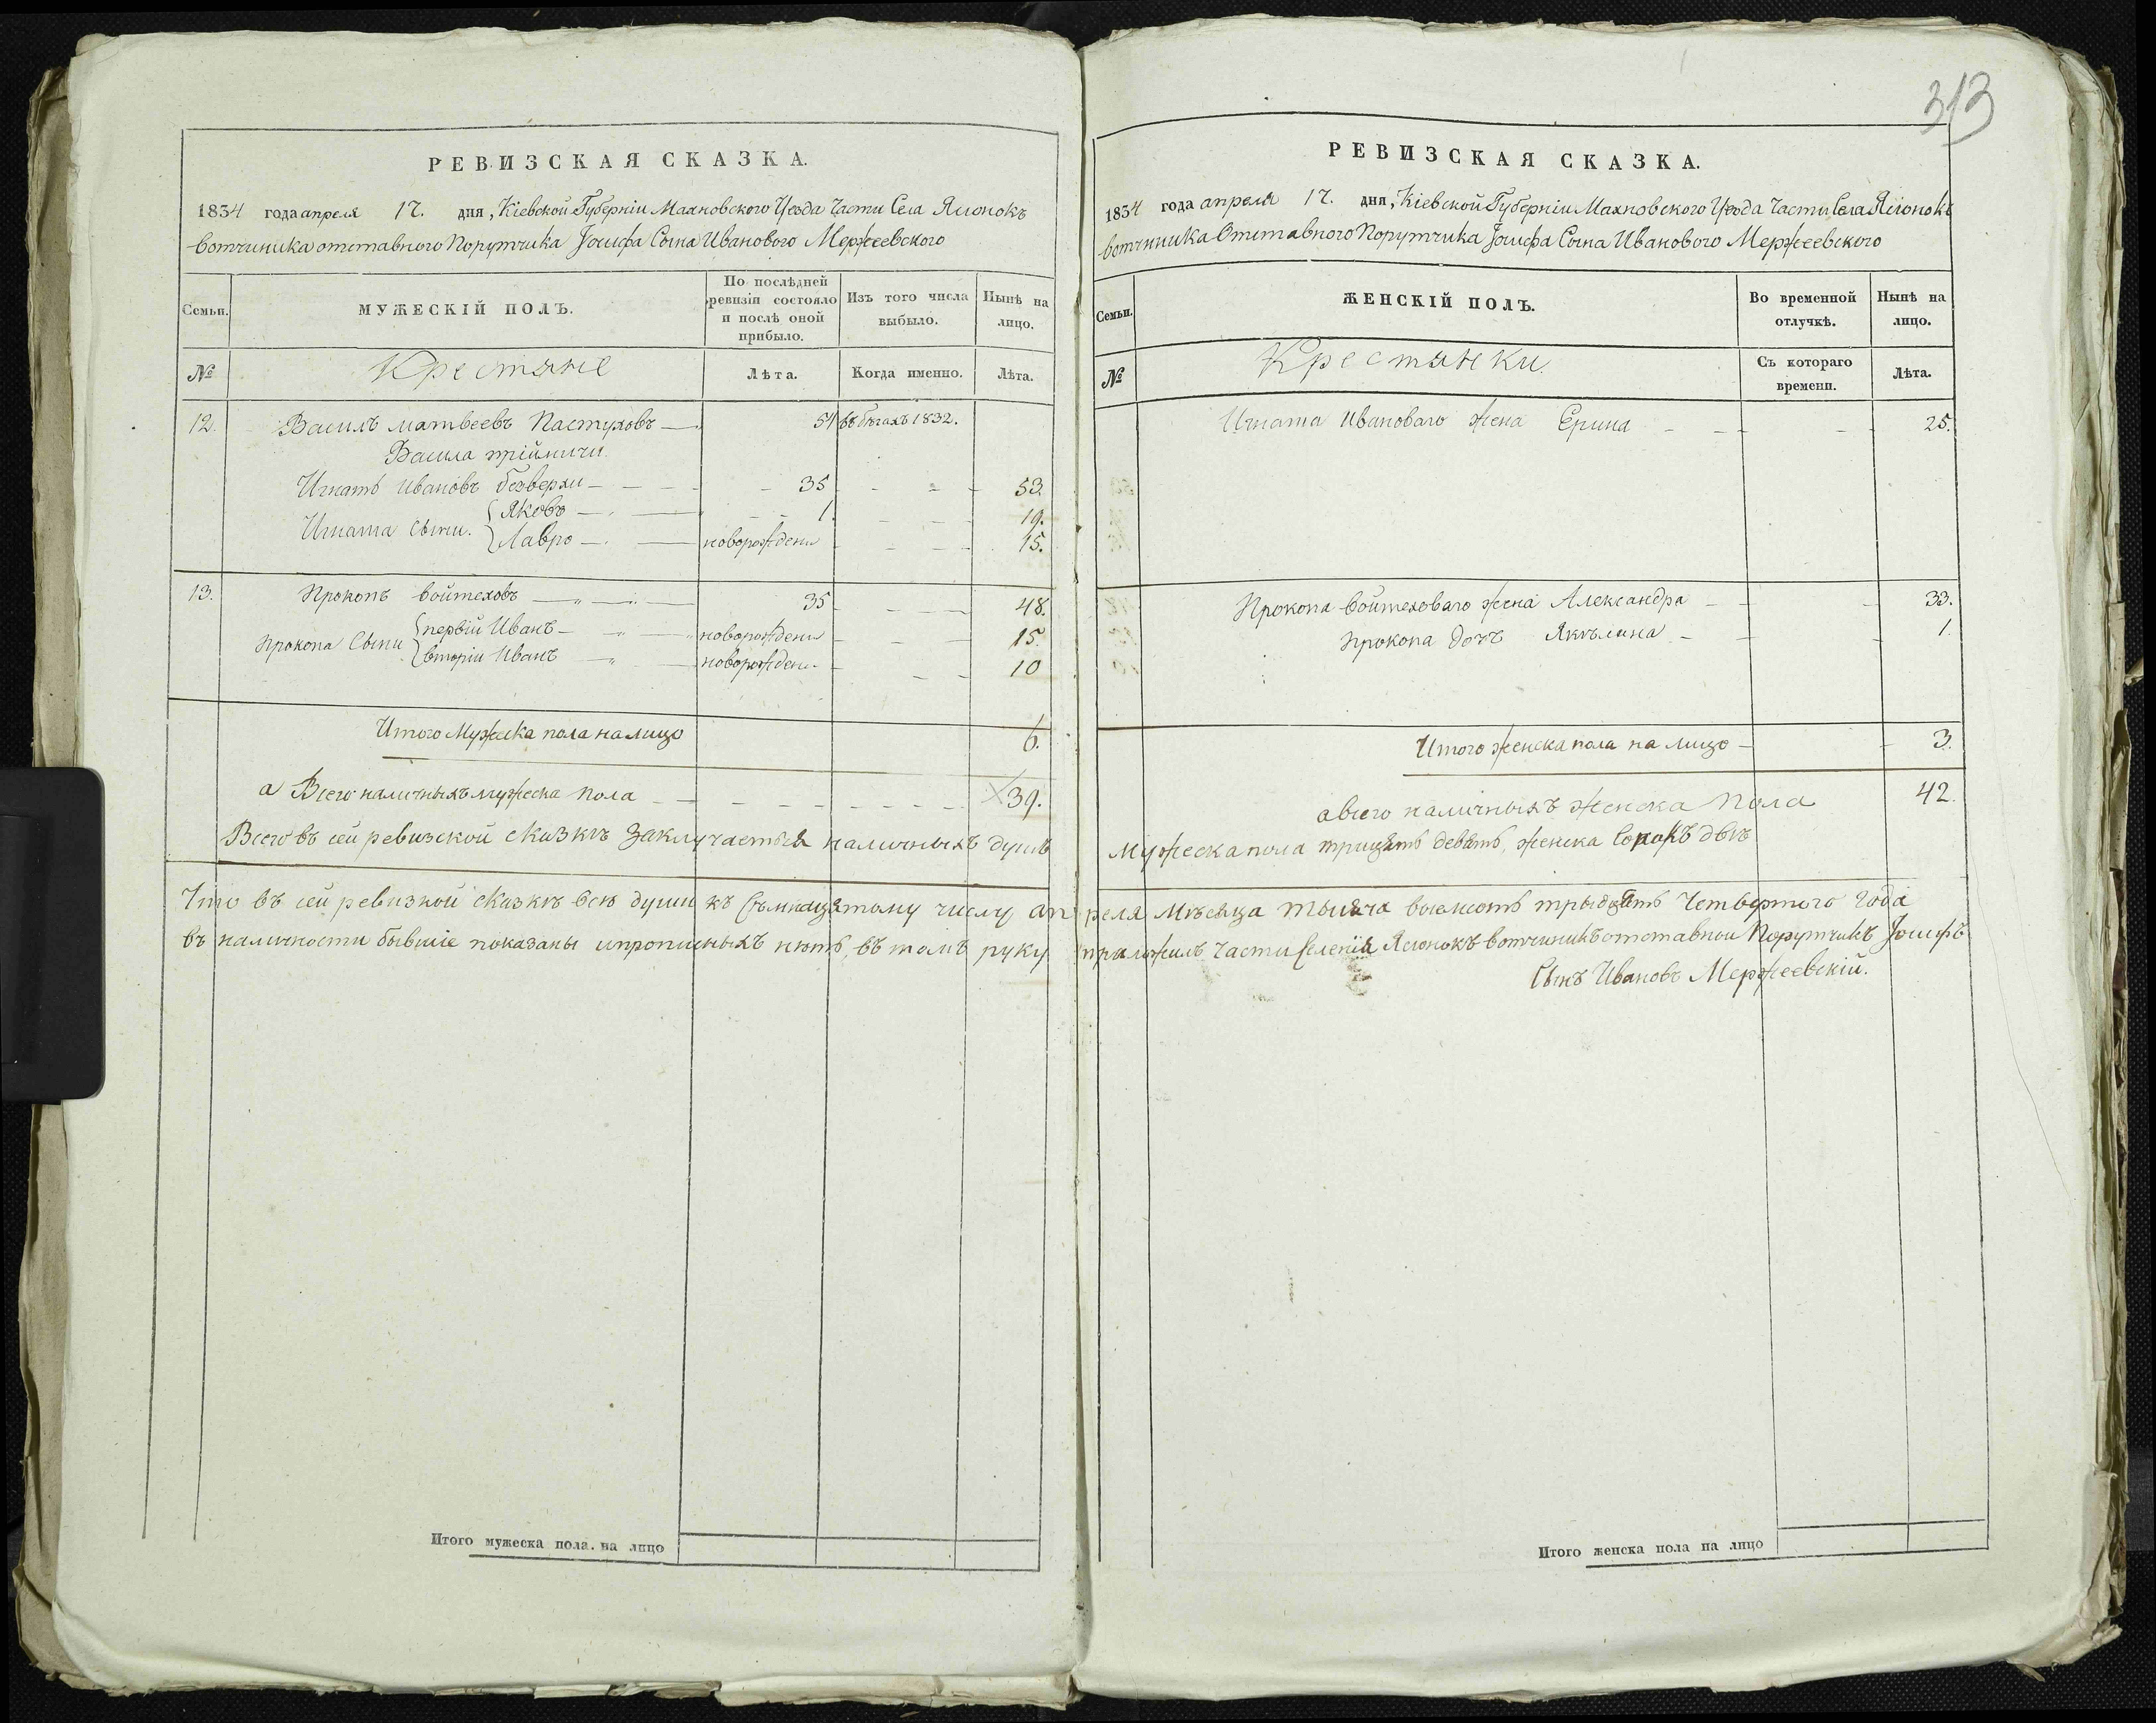 313
РЕВИЗСКАЯ СКАЗКА.
1834 года апреля 17. дня, Кіевской Губерніи Махновского Уезда Части Села Ясіонокъ
вотчиника отставного Порутчика Іосифа Сына Иванового Мержеевского
Семьи. МУЖЕСКІЙ ПОЛЪ. По послѣдней ревизіи состояло и послѣ оной прибыло. Изъ того числа выбыло. Нынѣ на лицо.
№ Крестяне Лѣта. Когда именно. Лѣта.
12. Василъ матвеевъ Пастуховъ 54 въ бегахъ 1832.
Васила пріймичи
Игнатъ Ивановъ безверхи 35 53.
Игната сыни. Яковъ 1. 19.
Лавро новорождени 15.
13. Прокопъ войтеховъ 35 48.
Прокопа Сыни первій Иванъ новорождени 15.
вторіи Иванъ новорождени 10
Итого Мужеска пола на лицо 6.
а Всего наличныхъ мужеска Пола 39.
Всего въ сей ревизской сказкѣ заключается наличныхъ душъ
Что въ сей ревизкой сказкѣ всѣ души къ Семнацятому числу ап
въ наличности бывшіе показаны и прописныхъ нѣтъ, въ томъ руку
Итого мужеска пола на лицо
РЕВИЗСКАЯ СКАЗКА.
1834 года апреля 17. дня, Кіевской Губерніи Махновского Уезда Части Села Ясіонокъ
вотчинника Отставного Порутчика Іосифа Сына Иванового Мержеевского
Семьи. ЖЕНСКІЙ ПОЛЪ. Во временной отлучкѣ. Нынѣ на лицо.
№ Крестянки Съ котораго времени. Лѣта.
Игната Ивановаго жена Ерина 25.
Прокопа войтеховаго жена Александра 33.
Прокопа дочъ Якѣлина 1.
Итого женска пола на лицо 3.
а всего наличныхъ женска Пола 42.
Мужеска пола трицять девять, женска Сорокъ двѣ
реля Мѣсяца тысяча восемсотъ трыдцять Четвертого года
приложилъ части селенія Ясіонокъ вотчиникъ отставнои Порутчикъ Іосифъ
Сынъ Ивановъ Мержеевскій.
Итого женска пола на лицо